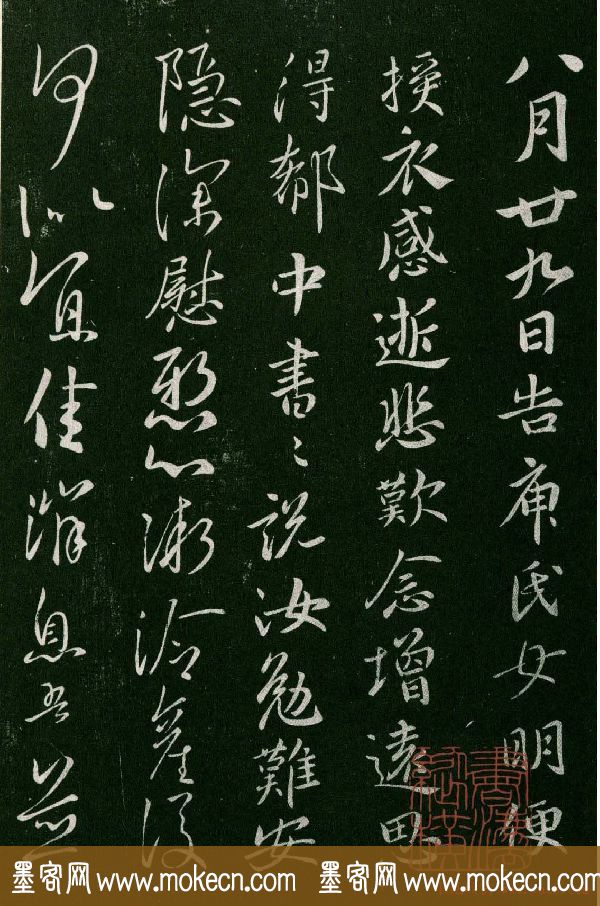 八月廿九日告庾氏女明便
授衣感逝悲歎念增遠思
得郗中書〻說汝勉難安
隱深慰懸心漸冷產後
何似宜佳消息吾並
墨客网 www.mokecn.com 墨客网 www.mokecn.com